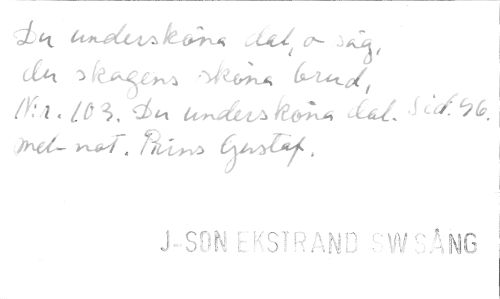 Du undersköna dal, o säg,
du skogens sköna brud,
Nr. 103. Du undersköna dal. Sid. 96.
mel-not. Prins Gustaf.
J-SON EKSTRAND SW SÅNG